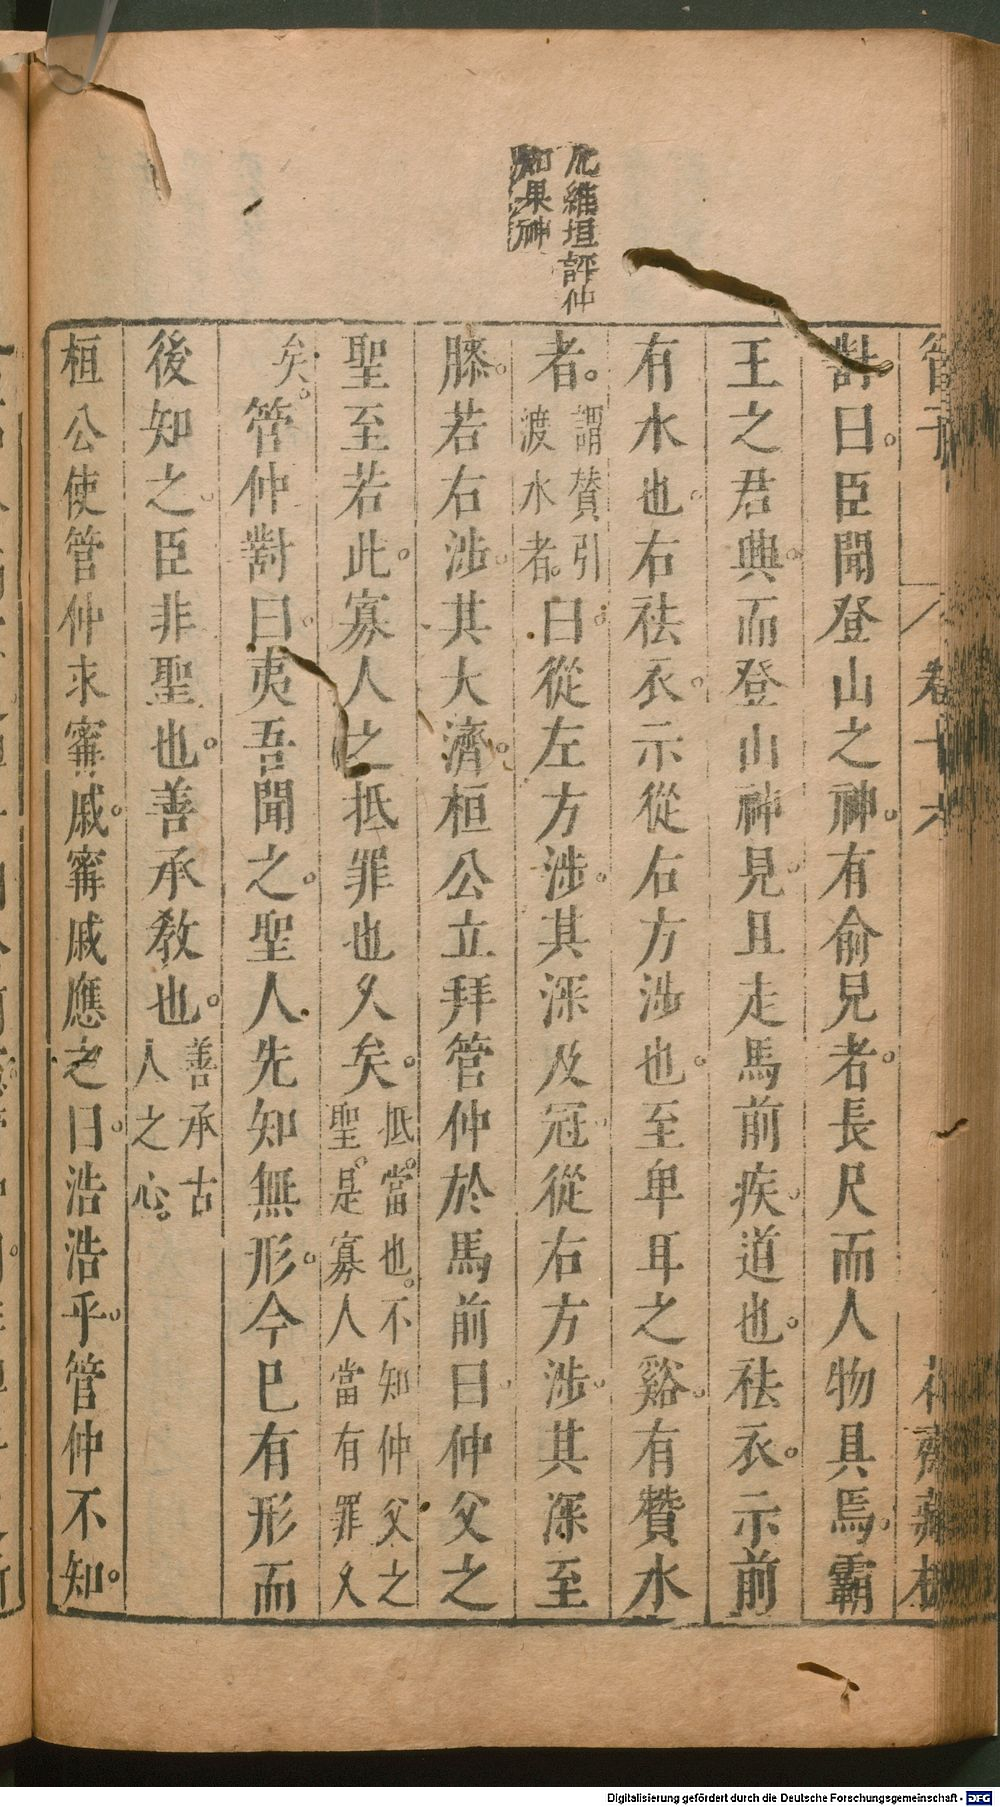 管子 卷十六 花齋藏板
沈維垣評仲
如果神
對曰。臣聞登山之神。有俞見者。長尺而人物具焉。霸
王之君興。而登山神見。且走馬前疾。道也。祛衣。示前
有水也。右祛衣。示從右方涉也。至卑耳之谿。有贊水
者。謂贊引渡水者。曰。從左方涉。其深及冠。從右方涉。其深至
膝。若右涉。其大濟。桓公立拜管仲於馬前曰。仲父之
聖至若此。寡人之抵罪也久矣。抵。當也。不知仲父之聖。是寡人當有罪久
矣。管仲對曰。夷吾聞之。聖人先知無形。今已有形而
後知之。臣非聖也。善承教也。善承古人之心。
桓公使管仲求寗戚。寗戚應之曰。浩浩乎。管仲不知。
Digitalisierung gefördert durch die Deutsche Forschungsgemeinschaft - DFG